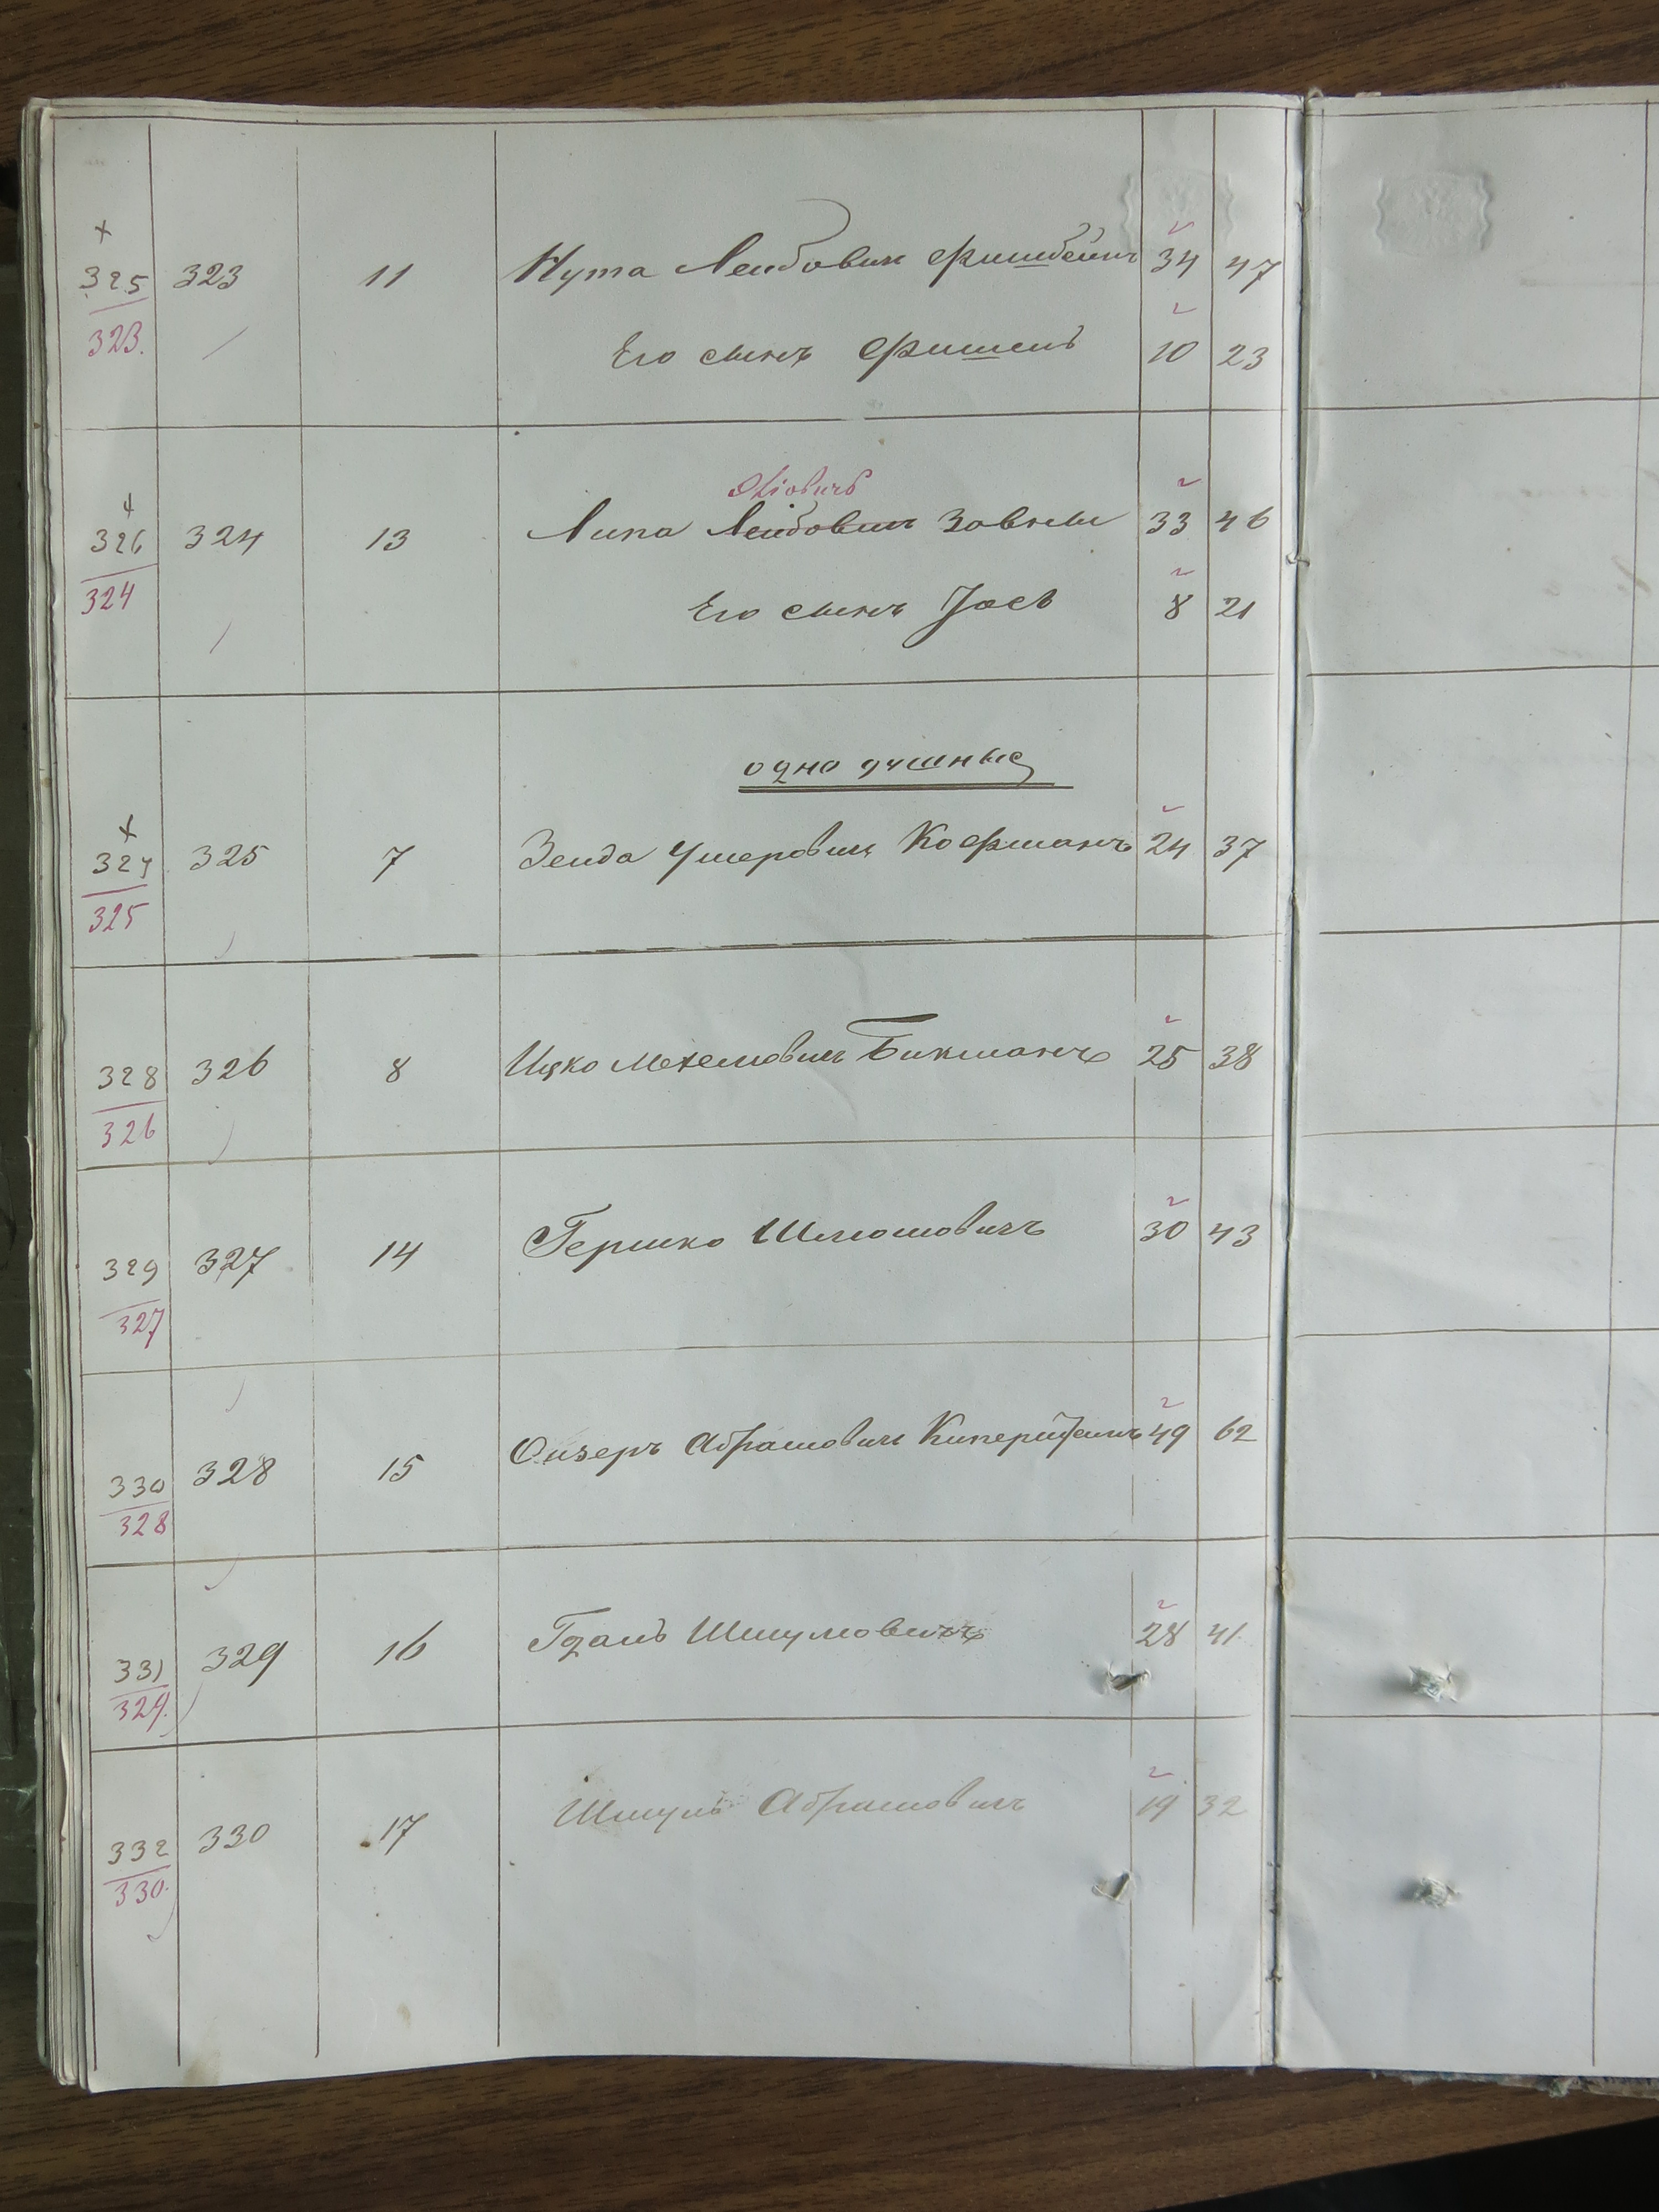 325 323 11 Нута Лейбовичъ Фишбейнъ 34 47
323.
Его сынъ Фишель 10 23
326 324 13 Липа Лейбовичъ 33 46
324
Его сынъ Іось 8 21
одно душные
327 325 7 Зейда Ушеровичъ Кофманъ 24 37
325
328 326 8 Ицко Мехелмовичъ Бикманъ 25 38
326
329 327 14 Гершко Шлиомовичъ 30 43
327
330 328 15 Ойзеръ Абрамовичъ 49 62
328
331 329 16 Шмулювичъ 28 41
329.
332 330 17 Шмуль Абрамовичъ 19 32
330.